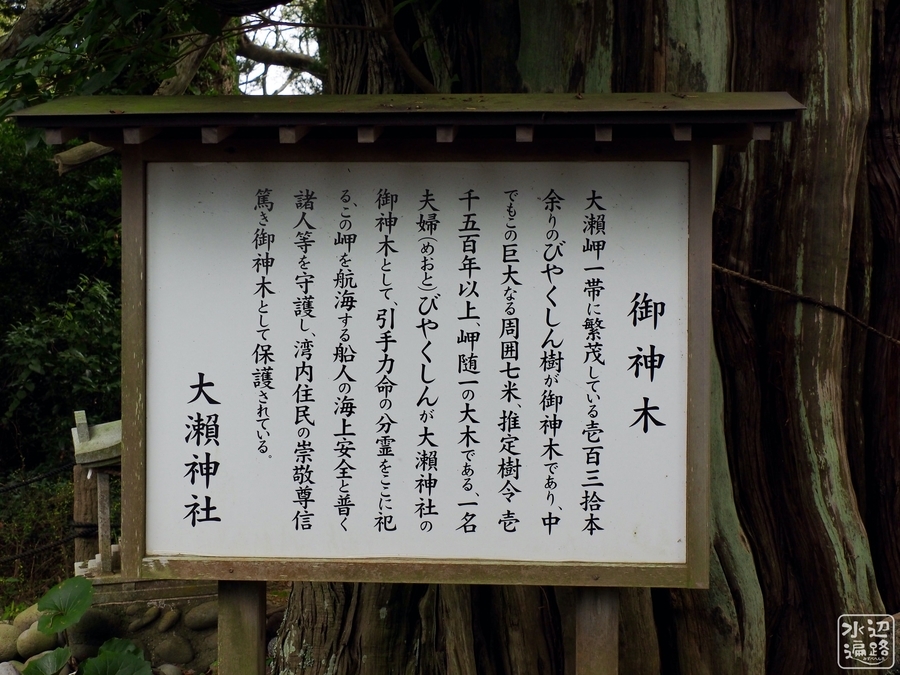 御神木
大瀬岬一帯に繁茂している壱百三拾本
余りのびやくしん樹が御神木であり、中
でもこの巨大なる周囲七米、推定樹令壱
千五百年以上、岬随一の大木である、一名
夫婦(めおと)びやくしんが大瀬神社の
御神木として、引手力命の分霊をここに祀
る、この岬を航海する船人の海上安全と普く
諸人等を守護し、湾内住民の崇敬尊信
篤き御神木として保護されている。
大瀬神社
水辺遍路